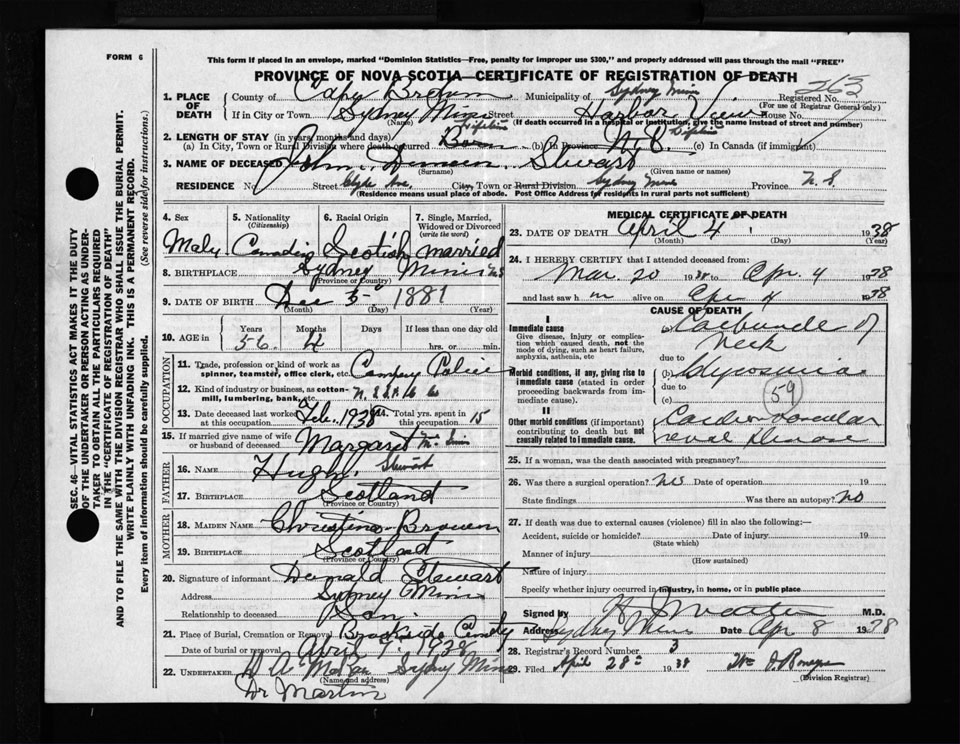 FORM 6
This form if placed in an envelope, marked "Dominion Statistics—Free, penalty for improper use $300," and properly addressed will pass through the mail "FREE"
PROVINCE OF NOVA SCOTIA—CERTIFICATE OF REGISTRATION OF DEATH
263
1. PLACE OF DEATH County of Cape Breton Municipality of Sydney Mines Registered No.
(For use of Registrar General only)
If in City or Town Sydney Mines Street Harbor View House No.
(Name) (If death occurred in a hospital or institution, give the name instead of street and number)
2. LENGTH OF STAY (in years, months and days) Lifetime Lifetime
(a) In City, Town or Rural Division where death occurred Born (b) In Province N.S. (c) In Canada (if immigrant)
3. NAME OF DECEASED John Stewart
(Surname) (Given name or names)
RESIDENCE No. Street Clyde Ave. City, Town or Rural Division Sydney Mines Province N.S.
(Residence means usual place of abode. Post Office Address for residents in rural parts not sufficient)
SEC. 46—VITAL STATISTICS ACT MAKES IT THE DUTY
OF THE UNDERTAKER OR PERSON ACTING AS UNDER-
TAKER TO OBTAIN ALL THE PARTICULARS REQUIRED
IN THE "CERTIFICATE OF REGISTRATION OF DEATH"
AND TO FILE THE SAME WITH THE DIVISION REGISTRAR WHO SHALL ISSUE THE BURIAL PERMIT.
WRITE PLAINLY WITH UNFADING INK. THIS IS A PERMANENT RECORD.
Every item of information should be carefully supplied. (See reverse side for instructions.)
4. Sex 5. Nationality (Citizenship) 6. Racial Origin 7. Single, Married, Widowed or Divorced (write the word)
Male Canadian Scotish married
8. BIRTHPLACE Sydney Mines N.S.
(Province or Country)
9. DATE OF BIRTH Dec 5 1881
(Month) (Day) (Year)
10. AGE in Years Months Days If less than one day old
56 4 hrs. or min.
OCCUPATION
11. Trade, profession or kind of work as spinner, teamster, office clerk, etc. Company Police
12. Kind of industry or business, as cotton-mill, lumbering, bank, etc.
13. Date deceased last worked at this occupation Feb. 1938 14. Total yrs. spent in 15
15. If married give name of wife or husband of deceased Margaret
FATHER
16. NAME Hugh Stewart
17. BIRTHPLACE Scotland
(Province or Country)
MOTHER
18. MAIDEN NAME Christina Brown
19. BIRTHPLACE Scotland
(Province or Country)
20. Signature of informant Donald Stewart
Address Sydney Mines
Relationship to deceased Son
21. Place of Burial, Cremation or Removal Brookside Cemetry
Date of burial or removal April 7, 1938
22. UNDERTAKER Sydney Mines
(Name and address)
Dr Martin
MEDICAL CERTIFICATE OF DEATH
23. DATE OF DEATH April 4 1938
(Month) (Day) (Year)
24. I HEREBY CERTIFY that I attended deceased from:
Mar. 20 1938 to Apr. 4 1938
and last saw h m alive on Apr 4 1938
CAUSE OF DEATH
I
Immediate cause
Give disease, injury or complication which caused death, not the mode of dying, such as heart failure, asphyxia, asthenia, etc
Carbuncle of
neck
due to
Morbid conditions, if any, giving rise to immediate cause (stated in order proceeding backwards from immediate cause).
(b) Glycosuria
due to
(c) 59
II
Other morbid conditions (if important) contributing to death but not causally related to immediate cause.
Cardio vascular
renal disease
25. If a woman, was the death associated with pregnancy?
26. Was there a surgical operation? No Date of operation 19
State findings Was there an autopsy? No
27. If death was due to external causes (violence) fill in also the following:—
Accident, suicide or homicide? Date of injury 19
(State which)
Manner of injury
(How sustained)
Nature of injury
Specify whether injury occurred in industry, in home, or in public place
Signed by M.D.
Address Sydney Mines Date Apr 8 1938
28. Registrar's Record Number 3
29. Filed April 28th 1938
(Division Registrar)